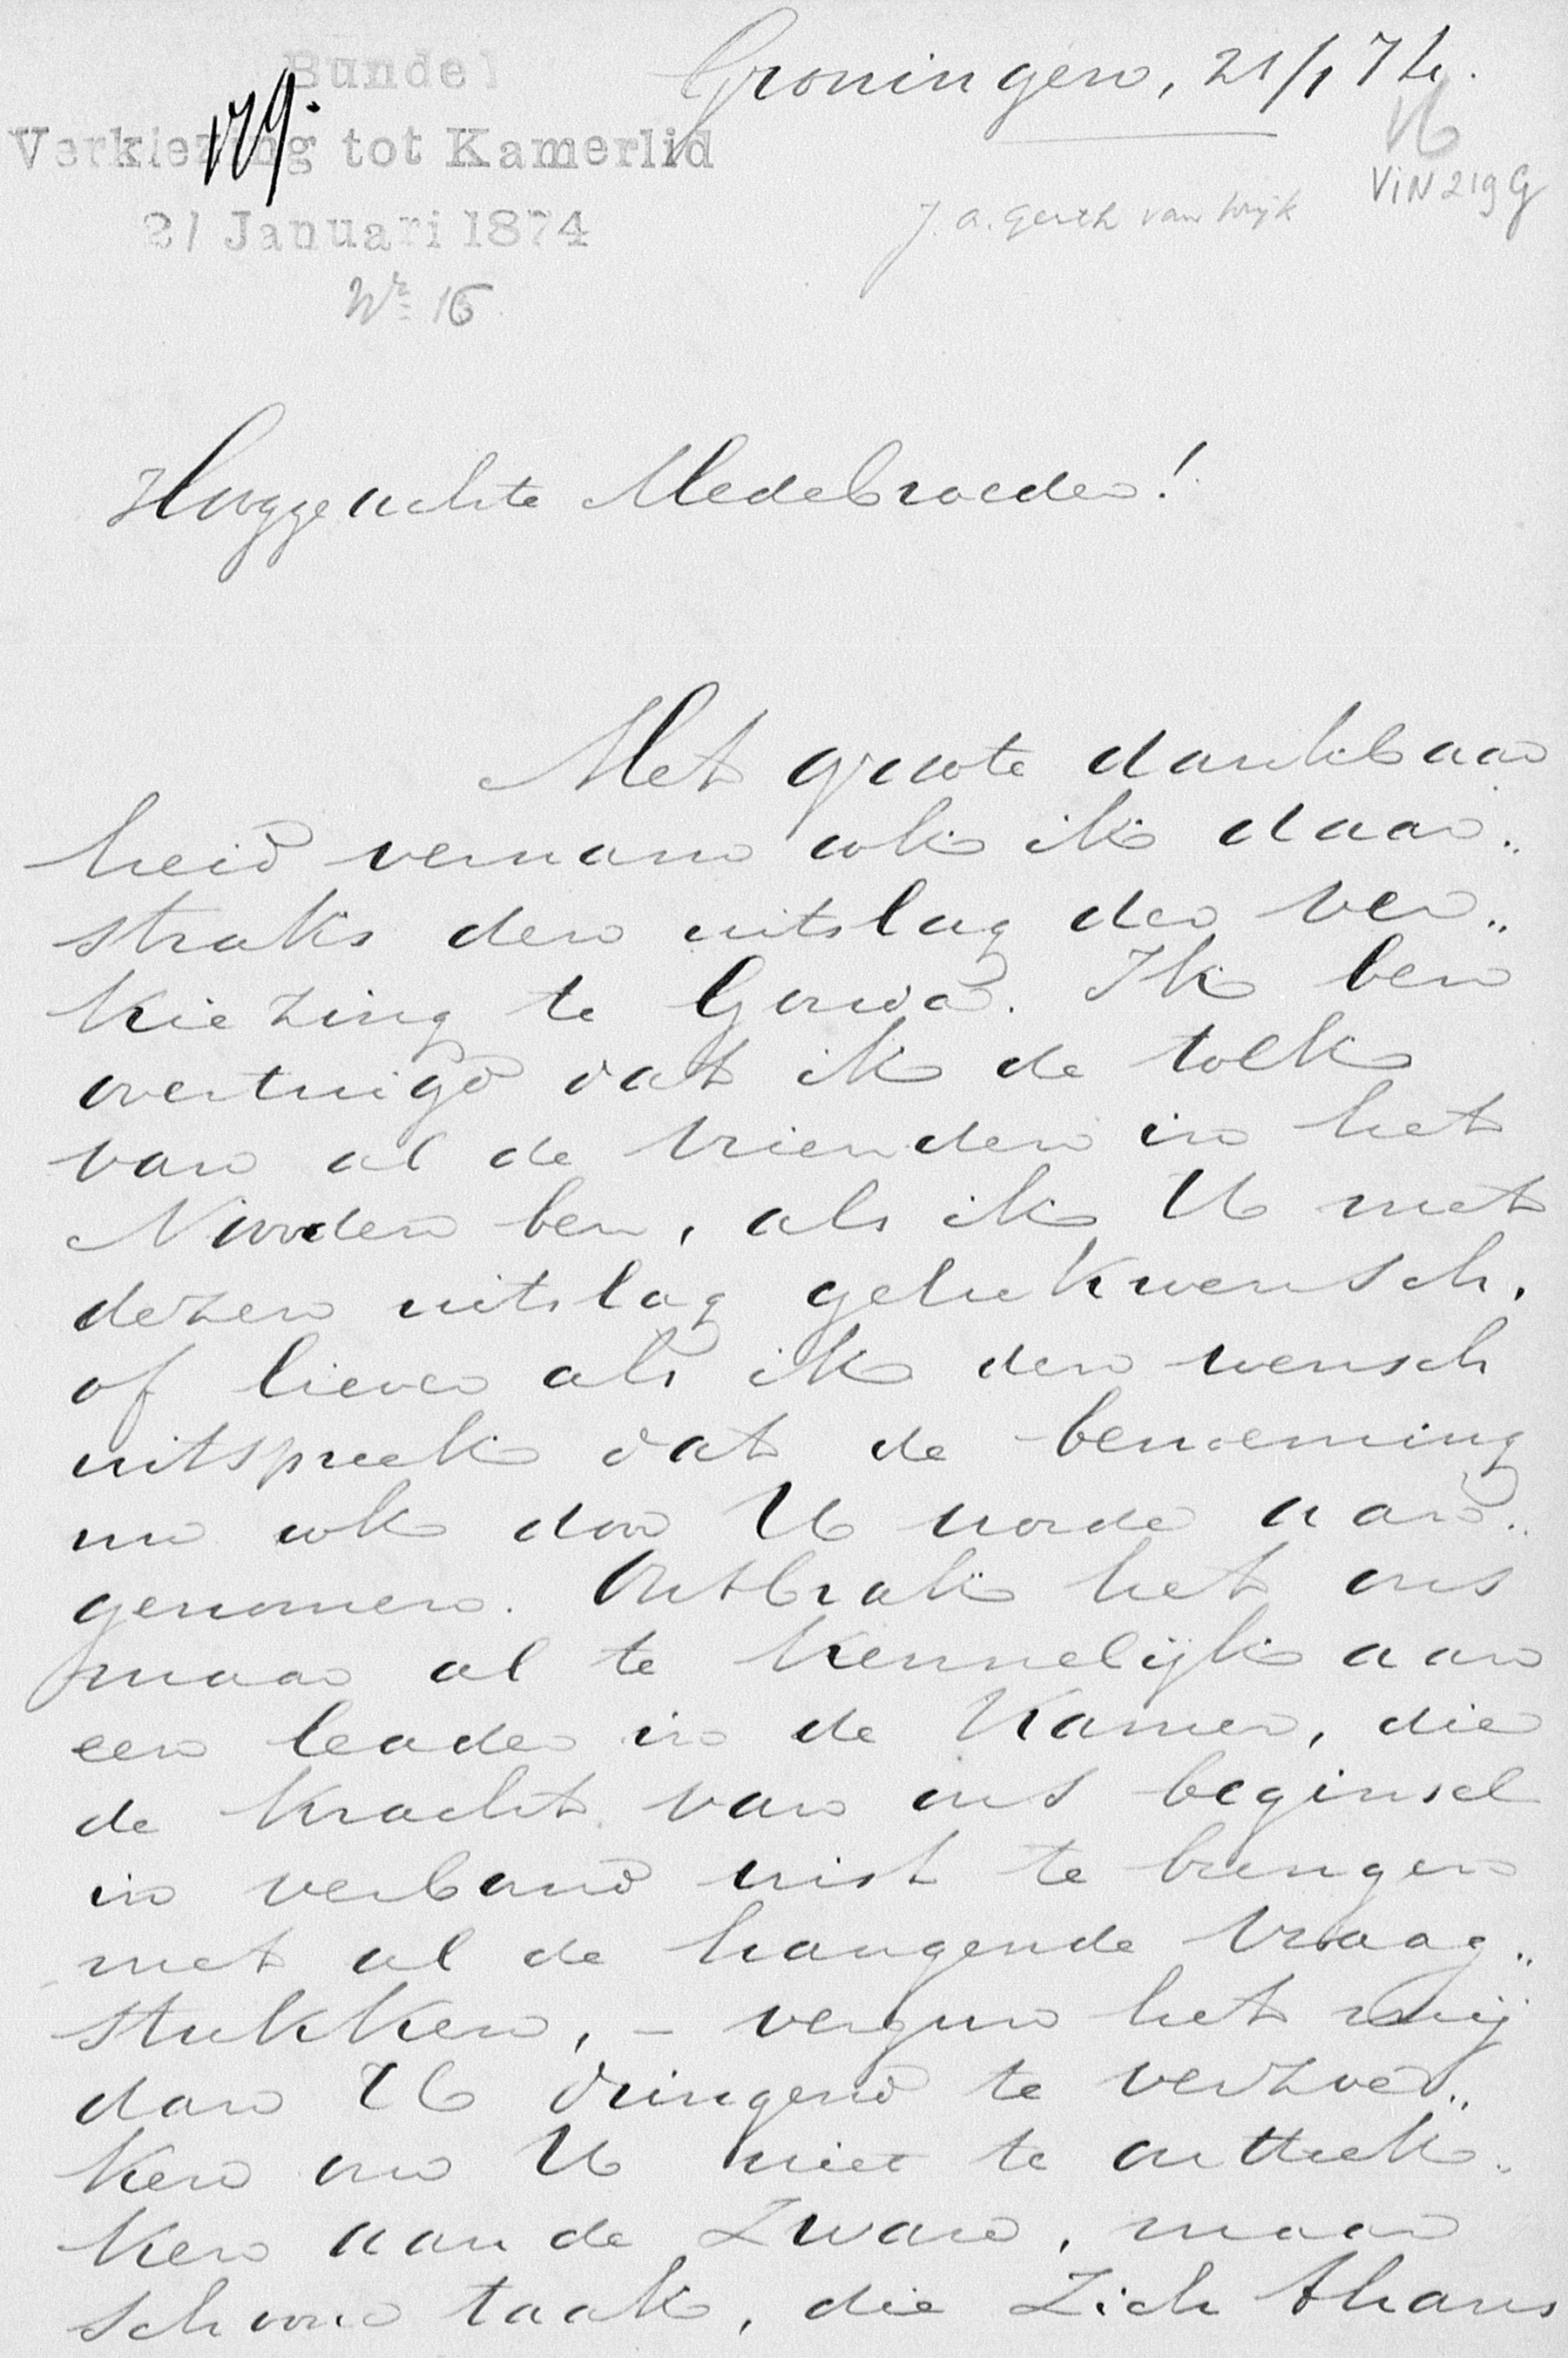 Bundel
Groningen, 21/1 74.
179.
Verkiezing tot Kamerlid
VIN 219 G
J. A. Gerth van Wijk
21 Januari 1874
Nr 16
Hooggeachte Medebroeder!
Met groote dankbaar
heid vernam ook ik daar„
straks den uitslag der ver„
kiezing te Gouda. Ik ben
overtuigd dat ik de tolk
van al de vrienden in het
Noorden ben, als ik U met
dezen uitslag gelukwensch,
of liever als ik den wensch
uitspreek dat de benoeming
nu ook door U worde aan„
genomen. Ontbrak het ons
maar al te kennelijk aan
een leader in de Kamer, die
de kracht van ons beginsel
in verband wist te brengen
met al de hangende vraag„
stukken, – vergun het mij
dan U dringend te verzoe„
ken om U niet te onttrek„
ken aan de zware, maar
schoone taak, die zich thans